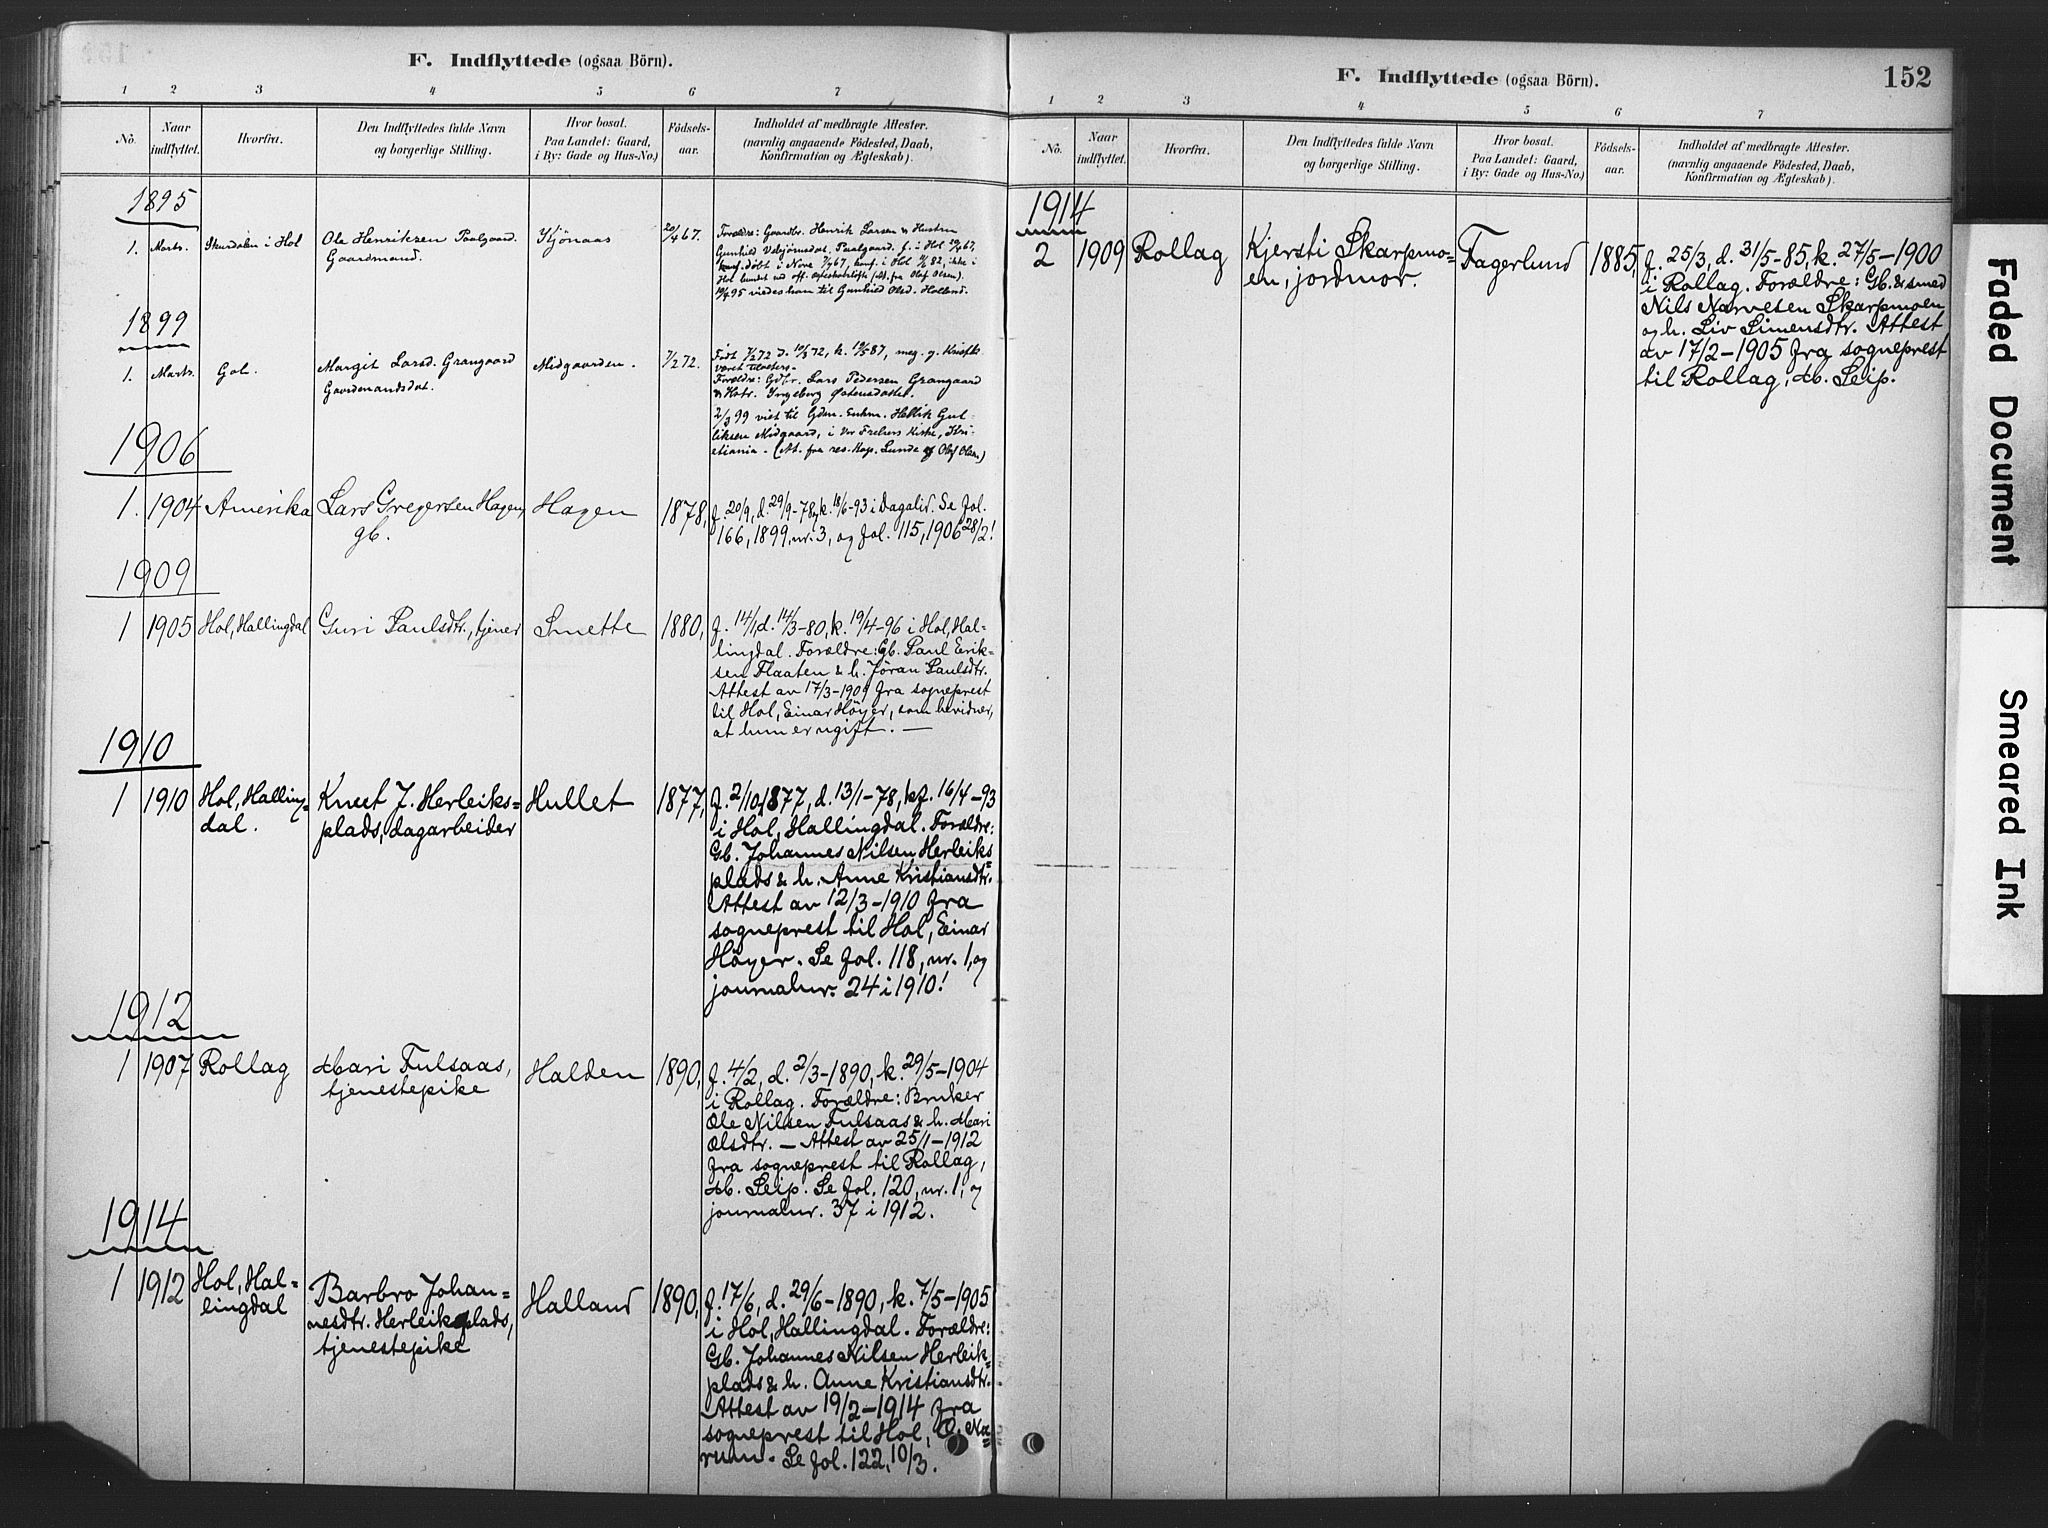 F. Indflyttede (ogsaa Börn).
1 2 3 4 5 6 7
No. Naar indflyttet. Hvorfra. Den Indflyttedes fulde Navn og borgerlige Stilling. Hvor bosat. Paa Landet: Gaard, i By: Gade og Hus-No.) Födsels-aar. Indholdet af medbragte Attester. (navnlig angaaende Födested, Daab, Konfirmation og Ægteskab).
1895
1. Marts. Skurdalen i Hol
Ole Henriksen Paalgaard.
Gaardmand.
Kjönaas
20/4 67.
Forældre: Gaardbr. Henrik Larsen & Hustru
Gunhild
Paalgaard. f. i Hol 20/4 67,
döbt i Nore 7/7 67, konf. i Hol 82, ikke i
(att. fra Olaf Olsen).
95 viedes han til Gunhild Olsd. Halland.
1899
1. Marts. Gol.
Margit Larsd. Grangaard
Gaardmandsdat.
Midgaarden.
7/2 72.
Födt 7/2 72 d. 10/3 72, k. 19/5 87, meg. g. Kristk.
Forældre: Gdbr. Lars Pedersen Grangaard
& Hstr. Ingeborg Østensdatter.
2/3 99 viet til Gdm. Enkm. Hellik Gul-
liksen Midgaard, i Vor Frelsers Kirke, Kri-
stiania. (At. fra res. Kap. Lunde & Olaf Olsen)
1906
1. 1904 Amerika
Lars Gregersen Hagen,
gb.
Hagen
1878,
f. 20/9, d. 29/9-78, k. 18/6-93 i Dagalid. Se fol.
166, 1899, nr. 3, og fol. 115, 1906 28/2!
1909
1 1905 Hol, Hallingdal
Guri Paulsdtr., tjener
Smette
1880,
f. 14/1, d. 14/3-80, k. 19/4-96 i Hol, Hal-
lingdal. Forældre: Gb. Paul Erik-
sen Flaaten & h. Jöran Paulsdtr.
Attest av 17/3-1909 fra sogneprest
til Hol, Einar Höyer, som bevidner,
at hun er ugift. —
1910
1 1910 Hol, Halling-
dal.
Knut J. Herleiks-
plads, dagarbeider
Hullet
1877,
f. 2/10 1877, d. 13/1-78, kf. 16/4-93
i Hol, Hallingdal. Forældre:
Gb. Johannes Nilsen Herleiks-
plads & h. Anne Kristiansdtr.
Attest av 12/3-1910 fra
sogneprest til Hol, Einar
Höyer. Se fol. 118, nr. 1, og
journalnr. 24 i 1910!
1912
1 1907 Rollag
Mari Fulsaas,
tjenestepike
Halden
1890,
f. 4/2, d. 2/3-1890, k. 29/5-1904
i Rollag. Forældre: Bruker
Ole Nilsen Fulsaas & h. Mari
Olsdtr. — Attest av 25/1-1912
fra sogneprest til Rollag,
M. Seip. Se fol. 120, nr. 1, og
journalnr. 37 i 1912.
1914
1 1912 Hol, Hal-
lingdal
Barbro Johan-
nesdtr. Herleiksplads,
tjenestepike
Halland
1890,
f. 17/6, d. 29/6-1890, k. 7/5-1905
i Hol, Hallingdal. Forældre:
Gb. Johannes Nilsen Herleik-
plads & h. Anne Kristiansdtr.
Attest av 19/2-1914 fra
sogneprest til Hol, O. Na-
rum. Se fol. 122, 10/3.
F. Indflyttede (ogsaa Börn).
152
1 2 3 4 5 6 7
No. Naar indflyttet. Hvorfra. Den Indflyttedes fulde Navn og borgerlige Stilling. Hvor bosat. Paa Landet: Gaard, i By: Gade og Hus-No.) Födsels-aar. Indholdet af medbragte Attester. (navnlig angaaende Födested, Daab, Konfirmation og Ægteskab).
1914
2 1909 Rollag
Kjersti Skarpmo-
en, jordmor.
Fagerlund
1885,
f. 25/3, d. 31/5-85, k. 27/5-1900
i Rollag. Forældre: Gb. & smed
Nils Narvesen Skarpmoen
og h. Liv Simensdtr. Attest
av 17/2-1905 fra sogneprest
til Rollag, M. Seip.
Faded Document
Smeared Ink